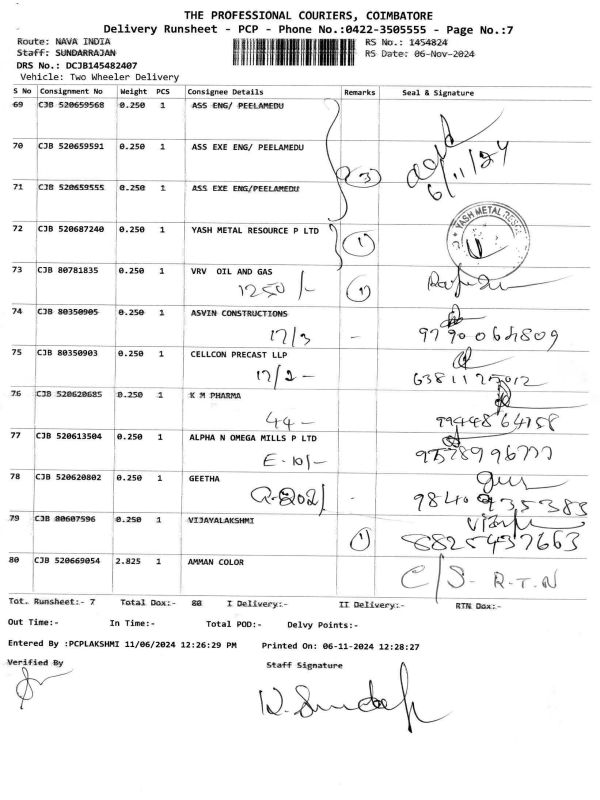 THE PROFESSIONAL COURIERS, COIMBATORE
Delivery Runsheet - PCP - Phone No.:0422-3505555 - Page No.:7
Route: NAVA INDIA RS No.: 1454824
Staff: SUNDARRAJAN RS Date: 06-Nov-2024
DRS No.: DCJB145482407
Vehicle: Two Wheeler Delivery
S No Consignment No Weight PCS Consignee Details Remarks Seal & Signature
69 CJB 520659568 0.250 1 ASS ENG/ PEELAMEDU
70 CJB 520659591 0.250 1 ASS EXE ENG/ PEELAMEDU
3 6/11/24
71 CJB 520659555 0.250 1 ASS EXE ENG/PEELAMEDU
72 CJB 520687240 0.250 1 YASH METAL RESOURCE P LTD 1 YASH METAL
73 CJB 80781835 0.250 1 VRV OIL AND GAS
1250/- 1
74 CJB 80350905 0.250 1 ASVIN CONSTRUCTIONS
17/3 - 9790064809
75 CJB 80350903 0.250 1 CELLCON PRECAST LLP
17/2 -
76 CJB 520620685 0.250 1 K M PHARMA
44 -
77 CJB 520613504 0.250 1 ALPHA N OMEGA MILLS P LTD
E-10/-
78 CJB 520620802 0.250 1 GEETHA
- 9840 935383
79 CJB 80607596 0.250 1 VIJAYALAKSHMI
1 8825437663
80 CJB 520669054 2.825 1 AMMAN COLOR
C/S - R.T.N
Tot. Runsheet:- 7 Total Dox:- 80 I Delivery:- II Delivery:- RTN Dox:-
Out Time:- In Time:- Total POD:- Delvy Points:-
Entered By :PCPLAKSHMI 11/06/2024 12:26:29 PM Printed On: 06-11-2024 12:28:27
Verified By Staff Signature